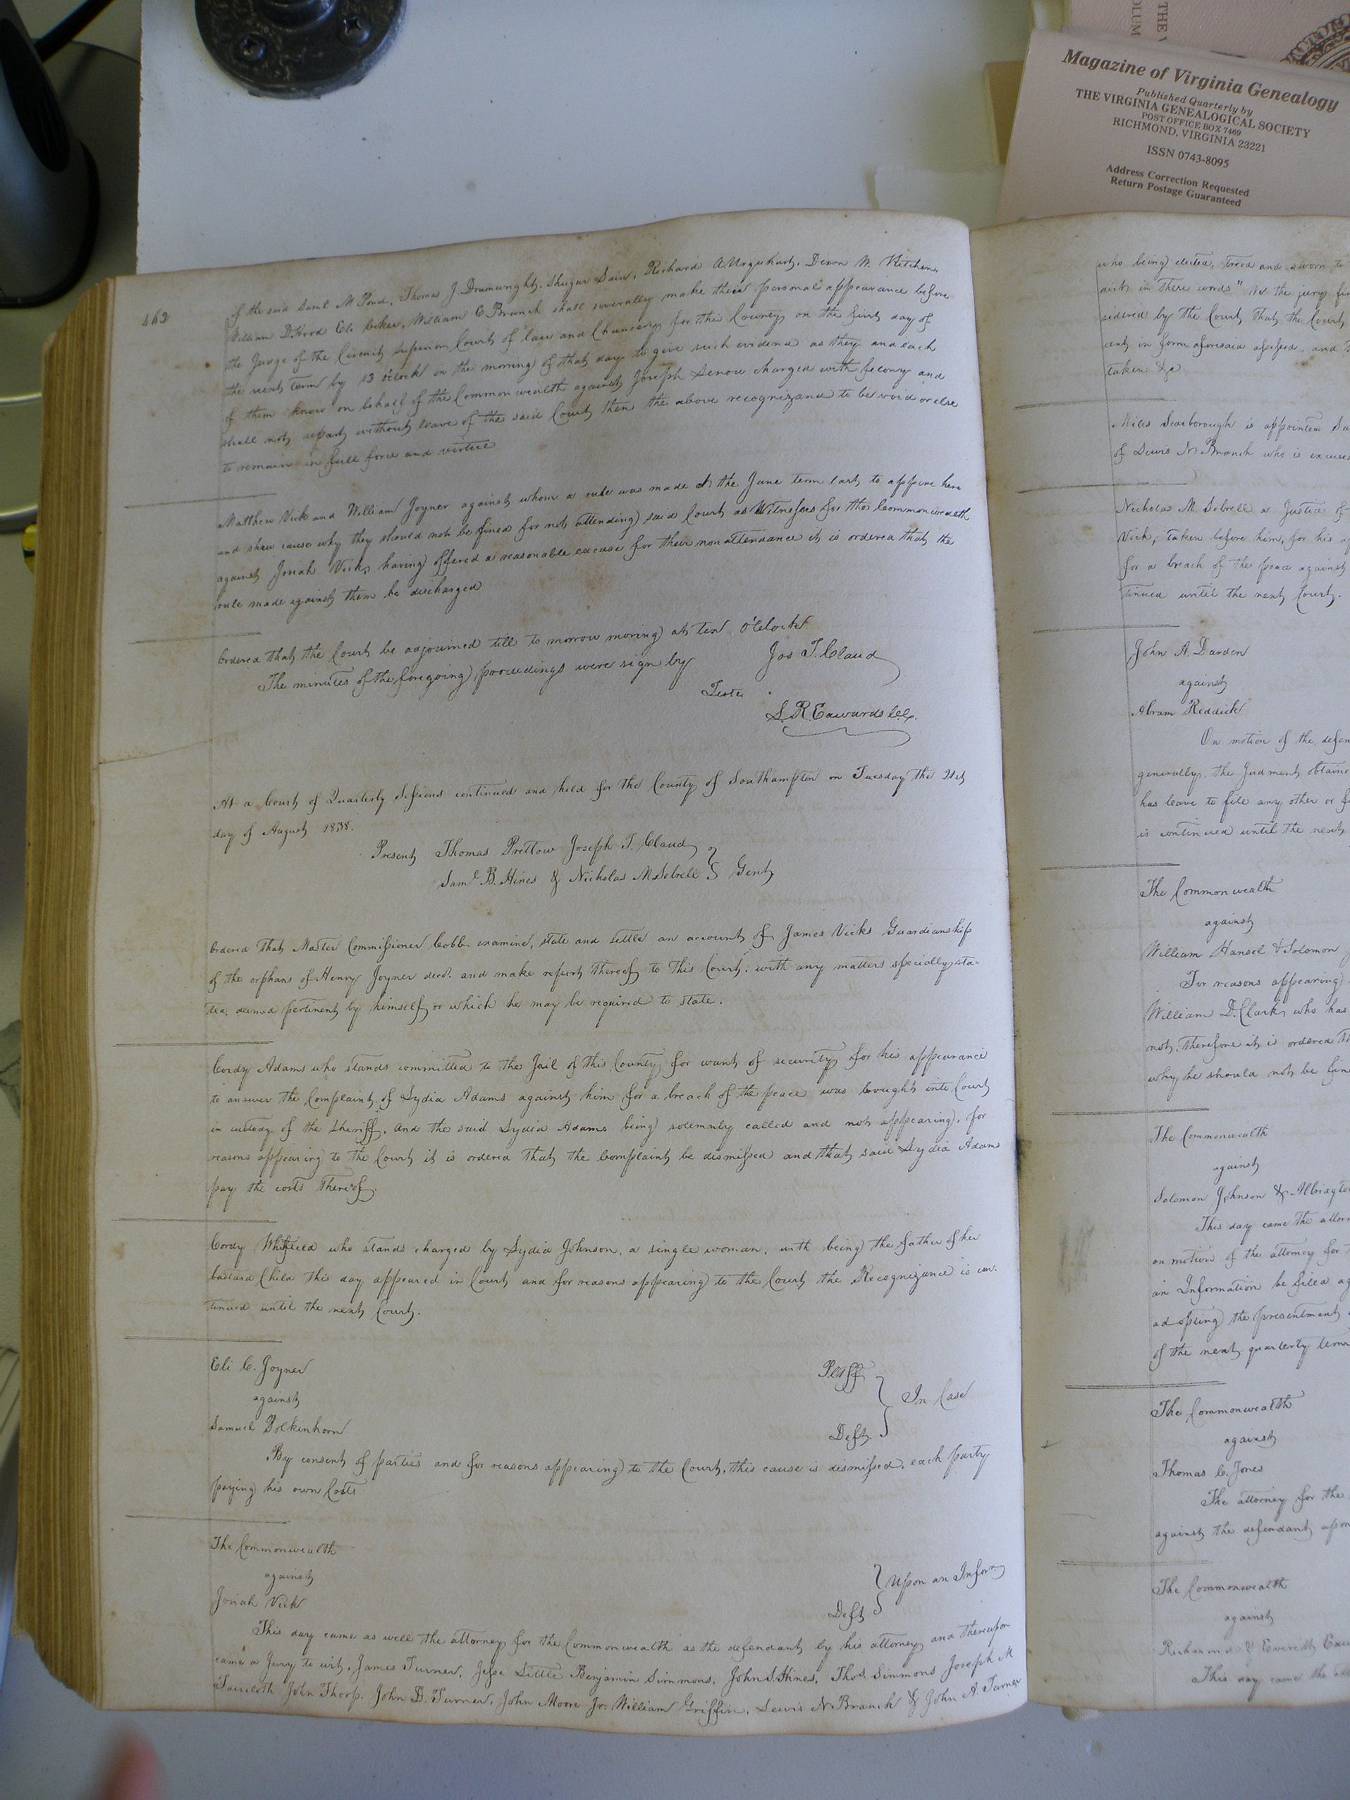 THE V
OLUM
Magazine of Virginia Genealogy
Published Quarterly by
THE VIRGINIA GENEALOGICAL SOCIETY
POST OFFICE BOX 7469
RICHMOND, VIRGINIA 23221
ISSN 0743-8095
Address Correction Requested
Return Postage Guaranteed
462
of the said Saml M Pond, Thomas J. Drumwright, Shugar Richard A Urquhart, Dixon W. Kitchen
William D. Hood Eli William C Branch shall severally make their personal appearance before
the Judge of the Circuit Superior Court of law and Chancery for the County on the first day of
the next term by 13 O'clock on the morning of that day to give such evidence as they and each
of them know on behalf of the Commonwealth against Joseph charged with felony and
shall not depart without leave of the said Court then the above recognizance to be void or else
to remain in full force and virtue
Matthew Vick and William Joyner against whom a rule was made at the June term last to appear here
and shew cause why they should not be fined for not attending said Court as Witnesses for the Commonwealth
against Josiah Vick, having offered a reasonable excuse for their nonattendance it is ordered that the
rule made against them be discharged
Ordered that the Court be adjourned till to morrow morning at ten O'Clock
The minutes of the foregoing proceedings were sign by Jos T. Claud
Teste
L. R Edwards
At a Court of Quarterly Sessions continued and held for the County of Southampton on Tuesday the 21st
day of August 1838.
Present Thomas Pretlow Joseph T. Claud
Saml B. Hines & Nicholas M Sebrell Gent
Ordered that Master Commissioner Cobb examine, state and settle an account of James Vicks Guardianship
of the orphans of Henry Joyner decd. and make report thereof to this Court, with any matters specially sta-
ted, deemed pertinent by himself or which he may be required to state.
Cordy Adams who stands committed to the Jail of this County for want of security for his appearance
to answer the Complaint of Lydia Adams against him for a breach of the peace was brought into Court
in custody of the Sheriff, and the said Lydia Adams being solemnly called and not appearing, for
reasons appearing to the Court it is ordered that the Complaint be dismissed and that said Lydia Adams
pay the costs thereof.
Cordy Whitfield who stands charged by Lydia Johnson, a single woman, with being the father of her
bastard Child this day appeared in Court and for reasons appearing to the Court the Recognizance is con-
tinued until the next Court.
Eli C. Joyner Plff
against In Case
Samuel Bolkinhorn Deft.
By consent of parties and for reasons appearing to the Court, this cause is dismissed, each party
paying his own Costs
The Commonwealth
against Upon an Inforn
Josiah Vick Deft
This day came as well the attorney for the Commonwealth as the defendant by his attorney and thereupon
came a Jury to wit, James Turner, Jesse Little Benjamin Simmons, John S Hines, Thos. Simmons Joseph M
John Thorp, John D. Turner, John Moore Jr. William Griffin, Lewis N. Branch & John A. Turner
who being elected, tried and sworn to
in these words " We the jury
sidered by the Court that the
in form aforesaid assessed, and
taken &c
Miles Scarborough is appointed
of Lewis N. Branch who is
Nicholas M. Sebrell a Justice of
Vick, taken before him, for his
for a breach of the peace against
tinued until the next Court.
John A. Darden
against
Abram Reddick
On motion of the
generally, the Judment
has leave to file any other or
is continued until the next
The Commonwealth
against
William Hansel & Solomon
For reasons appearing
William D. Clark, who has
not, therefore it is ordered
why he should not be
The Commonwealth
against
Solomon Johnson &
This day came the
on motion of the attorney for
an Information be filed
the presentment
of the next quarterly term
The Commonwealth
against
Thomas C. Jones
The attorney for the
against the defendant upon
The Commonwealth
against
& Everett
This day came the